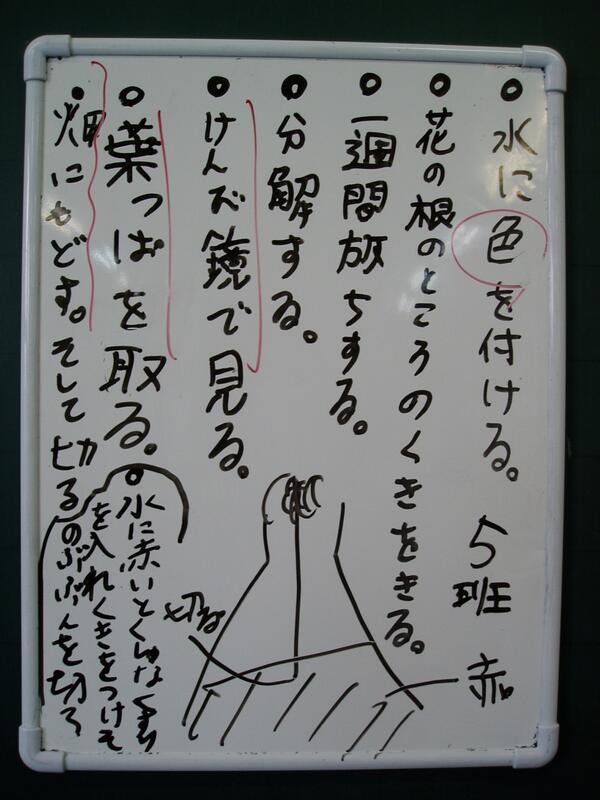 ●水に色を付ける。
5班
●花の根のところのくきをきる。
●一週間放ちする。
●分解する。
●けんび鏡で見る。
●葉っぱを取る。
●水に赤いとくしゅなくすり
を入れくきをつけそ
のぶぶんを切る
●畑にもどす。そして切る
切る
赤